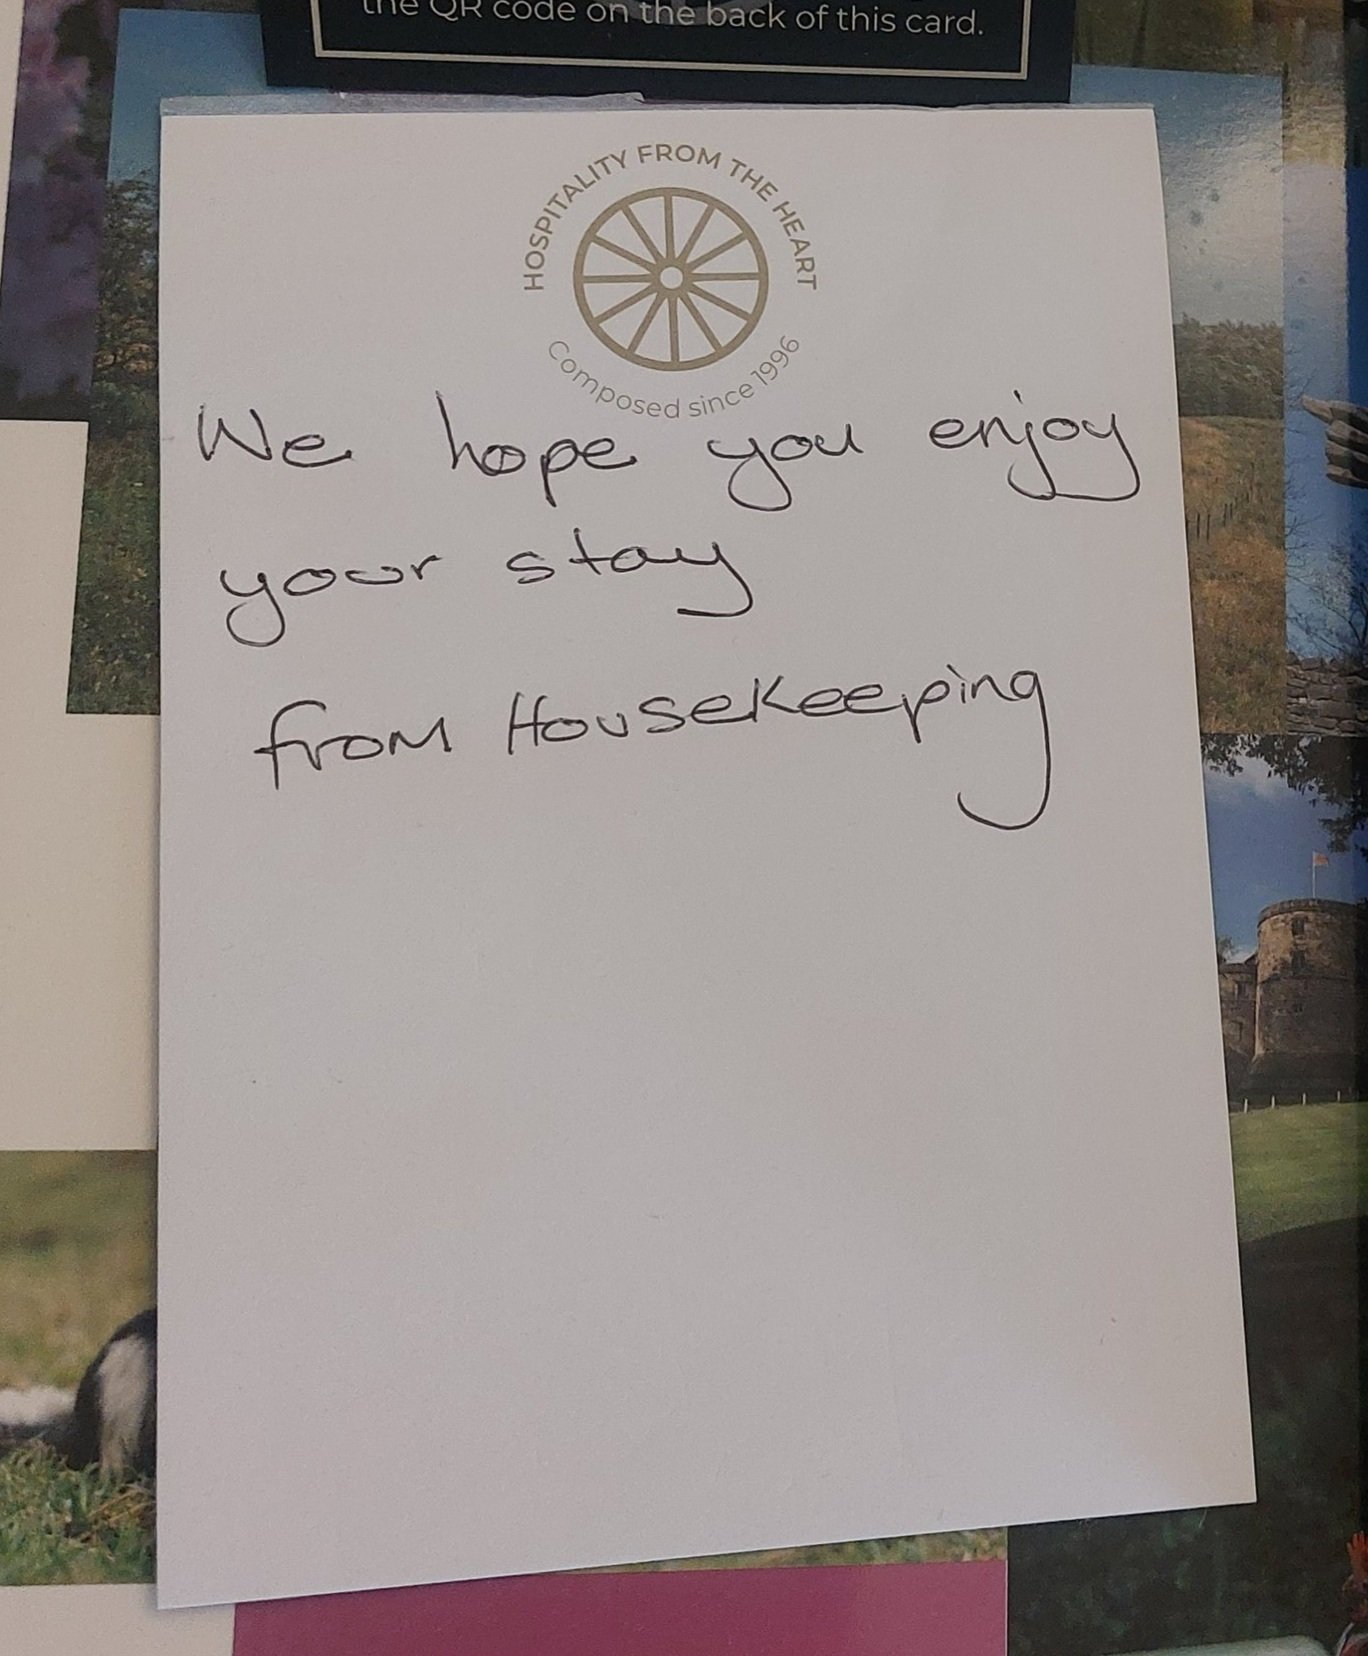 the QR code on the back of this card.
HOSPITALITY FROM THE HEART
Composed since 1996
We hope you enjoy
your stay
from Housekeeping